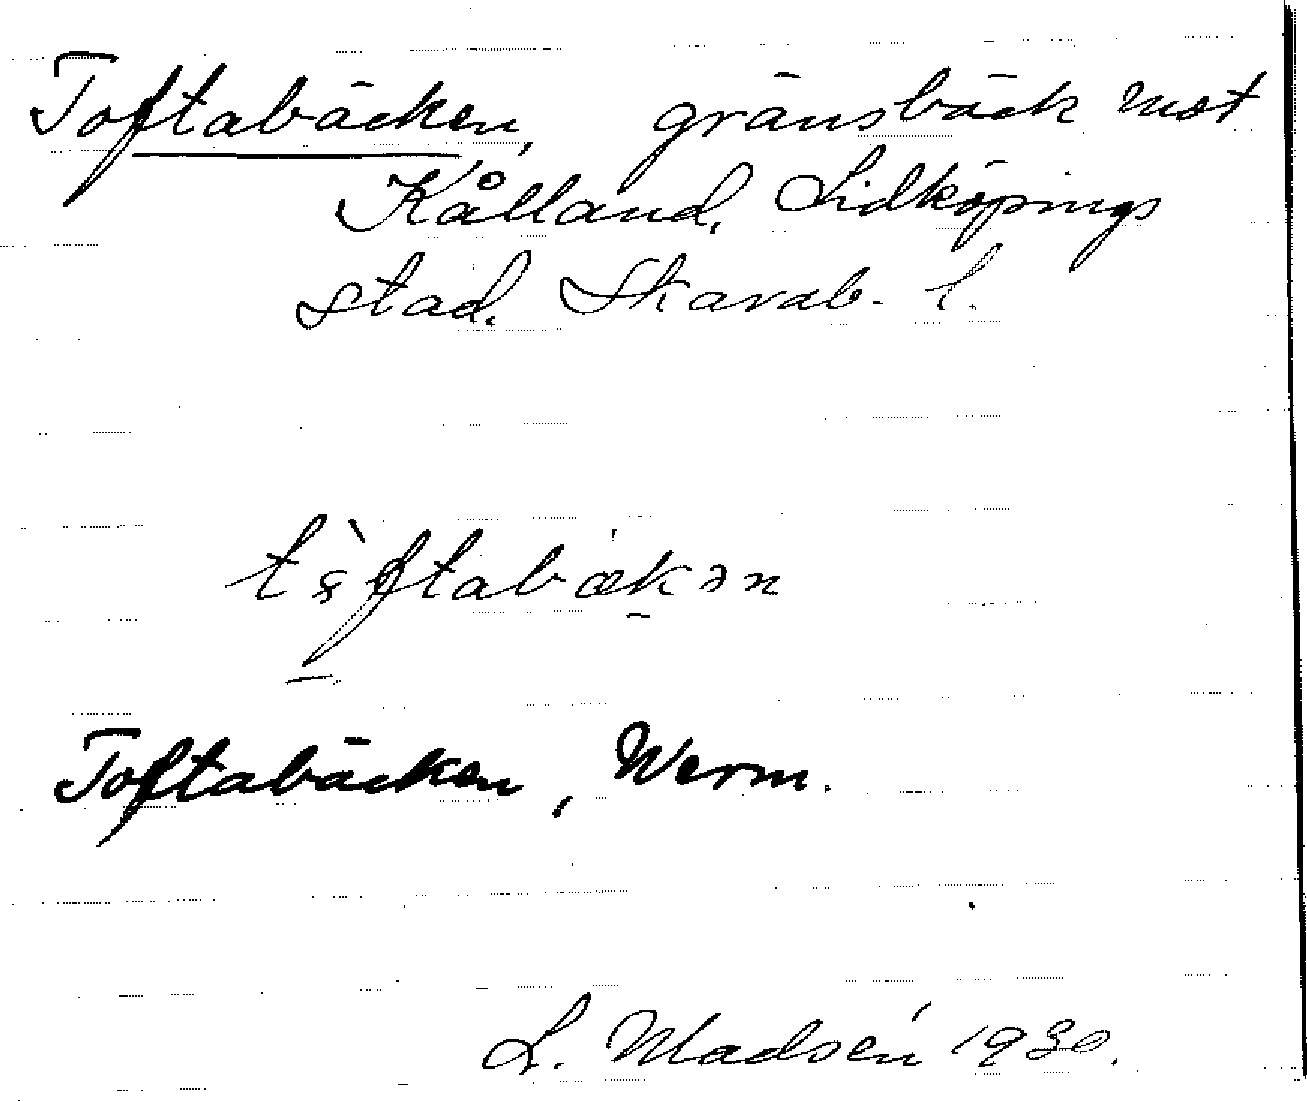 Toftabäcken, gränsbäck mot
Kålland, Lidköpings
stad. Skarab. l.
Toftabäcken, Werm.
L. Madsén 1930.